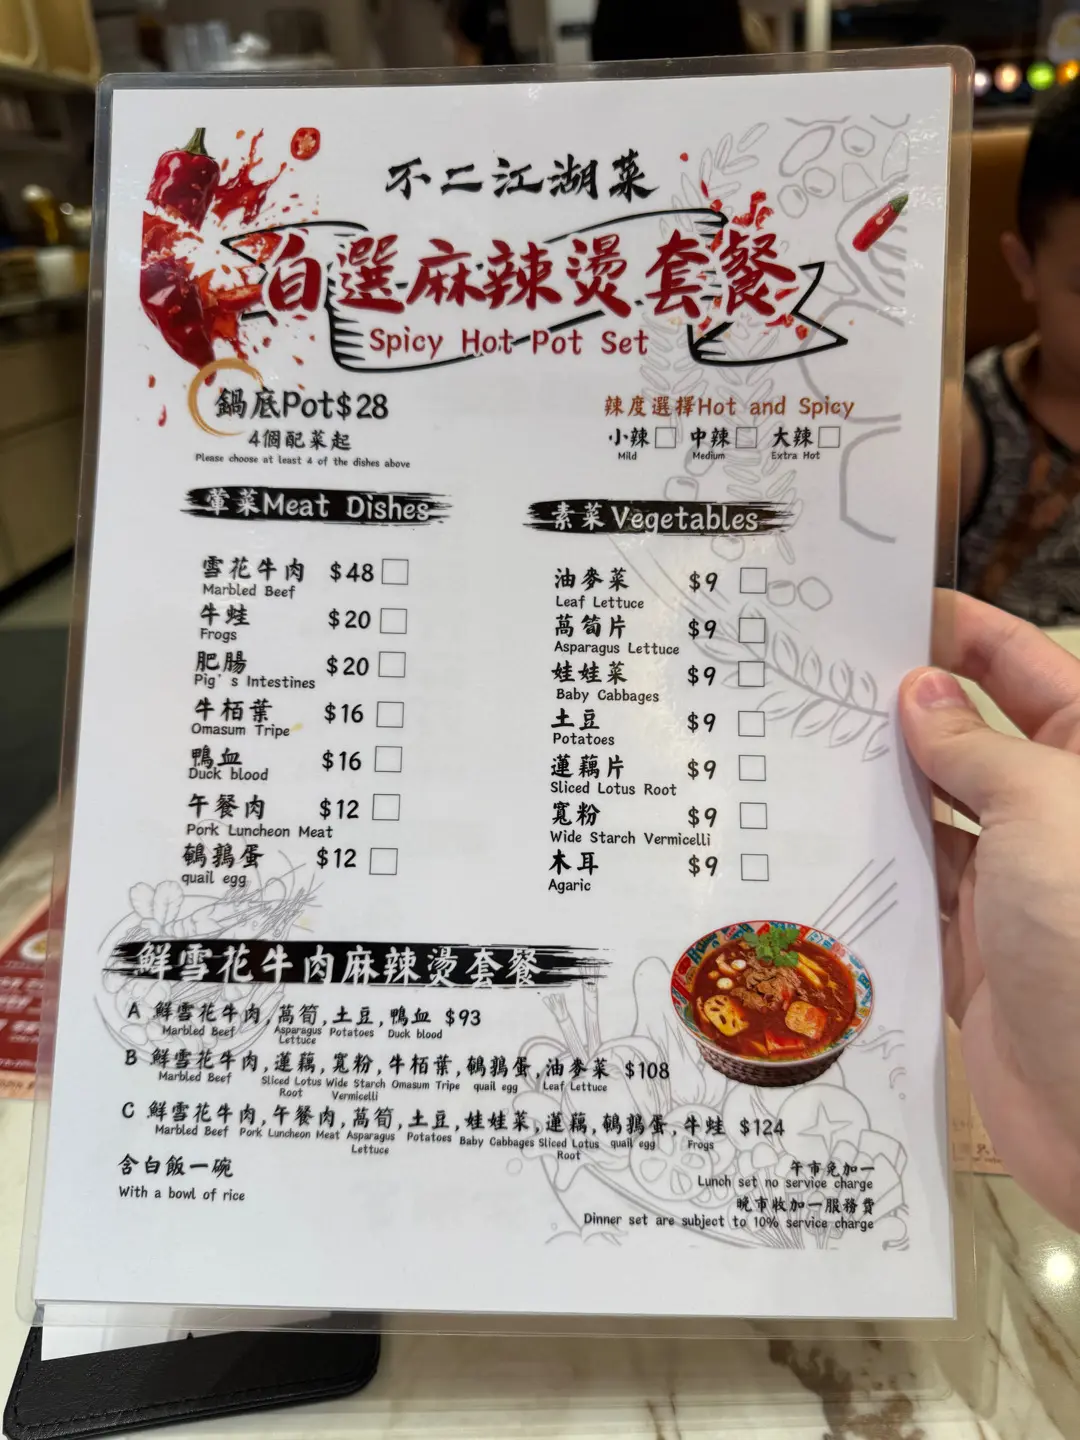 不二江湖菜
自選麻辣燙套餐
Spicy Hot Pot Set
鍋底Pot$28
4個配菜起
Please choose at least 4 of the dishes above
辣度選擇Hot and Spicy
小辣 中辣 大辣
Mild Medium Extra Hot
葷菜Meat Dishes
雪花牛肉 $48
Marbled Beef
牛蛙 $20
Frogs
肥腸 $20
Pig's Intestines
牛栢葉 $16
Omasum Tripe
鴨血 $16
Duck blood
午餐肉 $12
Pork Luncheon Meat
鵪鶉蛋 $12
quail egg
素菜Vegetables
油麥菜 $9
Leaf Lettuce
萵筍片 $9
Asparagus Lettuce
娃娃菜 $9
Baby Cabbages
土豆 $9
Potatoes
蓮藕片 $9
Sliced Lotus Root
寬粉 $9
Wide Starch Vermicelli
木耳 $9
Agaric
鮮雪花牛肉麻辣燙套餐
A 鮮雪花牛肉,萵筍,土豆,鴨血 $93
Marbled Beef Asparagus Lettuce Potatoes Duck blood
B 鮮雪花牛肉,蓮藕,寬粉,牛栢葉,鵪鶉蛋,油麥菜 $108
Marbled Beef Sliced Lotus Root Wide Starch Vermicelli Omasum Tripe quail egg Leaf Lettuce
C 鮮雪花牛肉,午餐肉,萵筍,土豆,娃娃菜,蓮藕,鵪鶉蛋,牛蛙 $124
Marbled Beef Pork Luncheon Meat Asparagus Lettuce Potatoes Baby Cabbages Sliced Lotus Root quail egg Frogs
含白飯一碗
With a bowl of rice
午市免加一
Lunch set no service charge
晚市收加一服務費
Dinner set are subject to 10% service charge